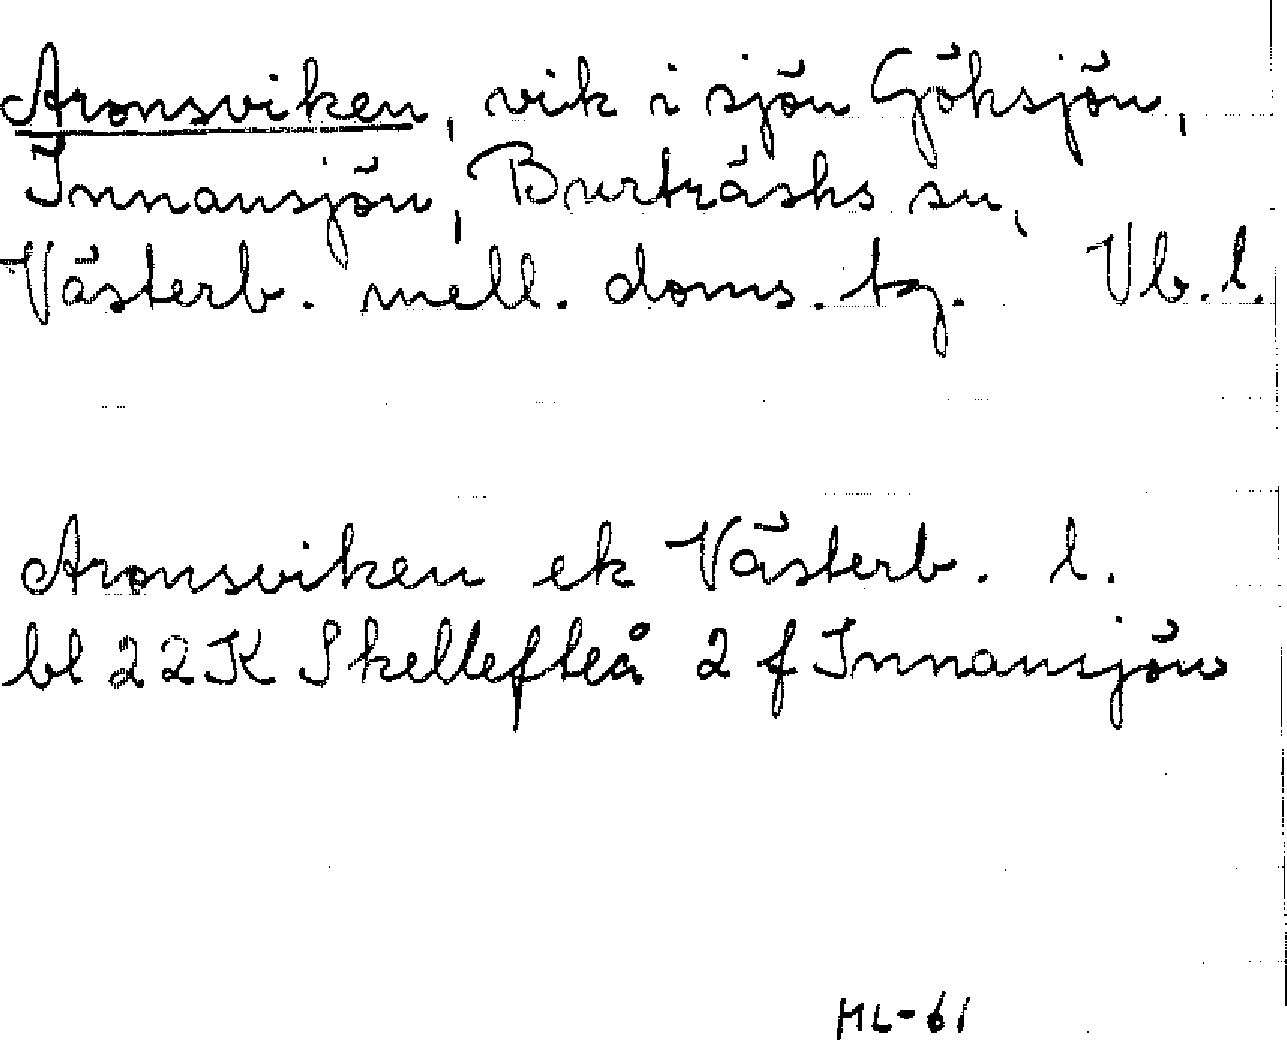 Aronsviken, vik i sjön Göksjön,
Innansjön, Burträsks sn,
Västerb. mell. doms. tg. Vb. l.
Aronsviken ek Västerb. l.
bl 22K Skellefteå 2 f Innansjön
HL-61